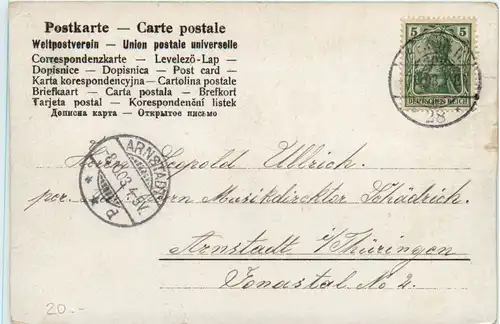 Postkarte — Carte postale
Weltpostverein — Union postale universelle
Correspondenzkarte — Levelező-Lap —
Dopisnice — Dopisnica — Post card —
Karta korespondencyjna — Cartolina postale
Briefkaart — Carta postala — Brefkort
Tarjeta postal — Korespondenční listek
Дописна карта — Открытое письмо
5 5
DEUTSCHES REICH
28
ARNSTADT
Herrn Leopold Ullrich.
per. Herrn Musikdirektor Schädrich.
Arnstadt i/Thüringen
Jonastal No 2.
20.-